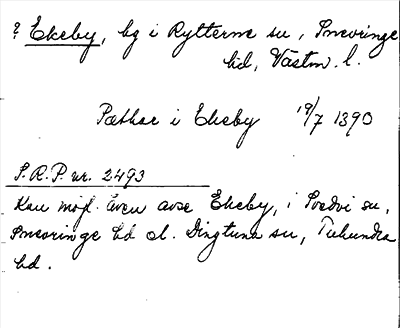 ? Ekeby, by i Rytterne sn, Snevringe
hd, Västm. l.
Pæthar i Ekeby 19/7 1390
S.R.P. nr. 2493
Kan möjl. även avse Ekeby, i Svedvi sn,
Snevringe hd el. Dingtuna sn, Tuhundra
hd.